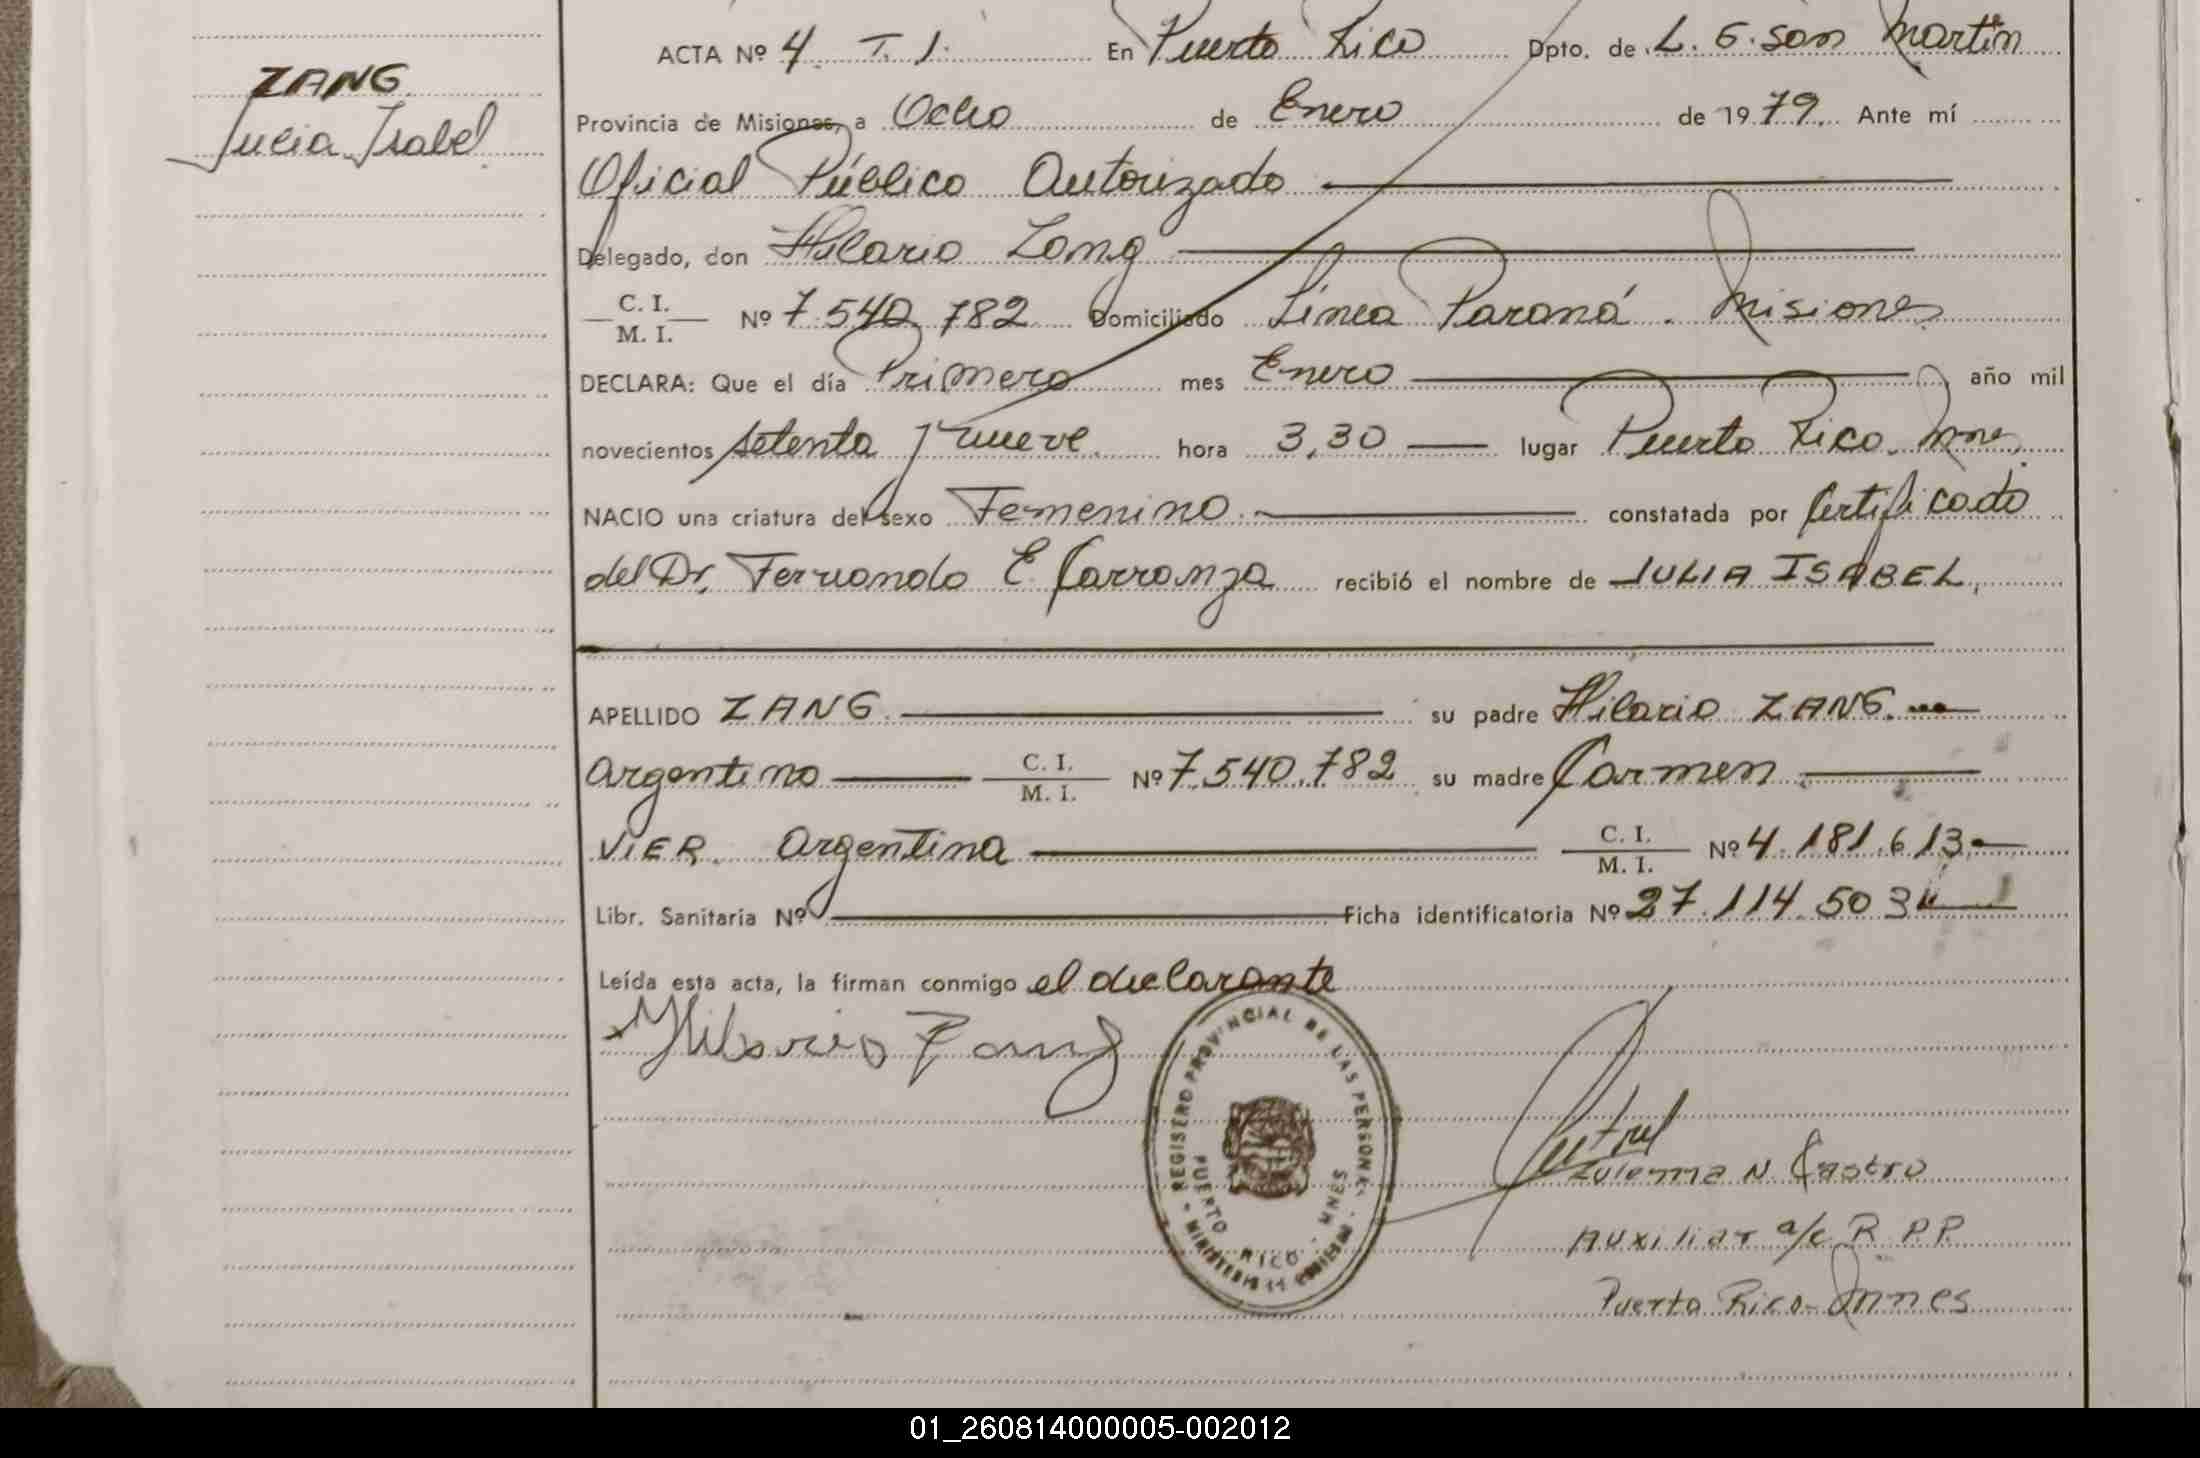 ZANG
Julia Isabel
ACTA Nº 4 T. 1. En Puerto Rico Dpto. de L. G. San Martín
Provincia de Misiones, a Ocho de Enero de 1979. Ante mí
Oficial Público Autorizado
Delegado, don Hilario Zang
C. I.
M. I. Nº 7.540.782 Domiciliado Línea Paraná. Misiones
DECLARA: Que el día Primero mes Enero año mil
novecientos setenta y nueve. hora 3,30 lugar Puerto Rico. Mnes.
NACIO una criatura del sexo Femenino. constatada por Certificado
del Dr. Fernando E. Carranza recibió el nombre de JULIA ISABEL,
APELLIDO ZANG. su padre Hilario ZANG.
Argentino C. I. M. I. Nº 7.540.782 su madre Carmen
VIER. Argentina C. I. M. I. Nº 4.181.613.
Libr. Sanitaria Nº Ficha identificatoria Nº 27.114.503
Leída esta acta, la firman conmigo el declarante
x Hilario Zang
REGISTRO PROVINCIAL DE LAS PERSONAS
PUERTO RICO - MNES
Zulema N. Castro
Auxiliar a/c R. P.P.
Puerto Rico - Mnes
01_260814000005-002012